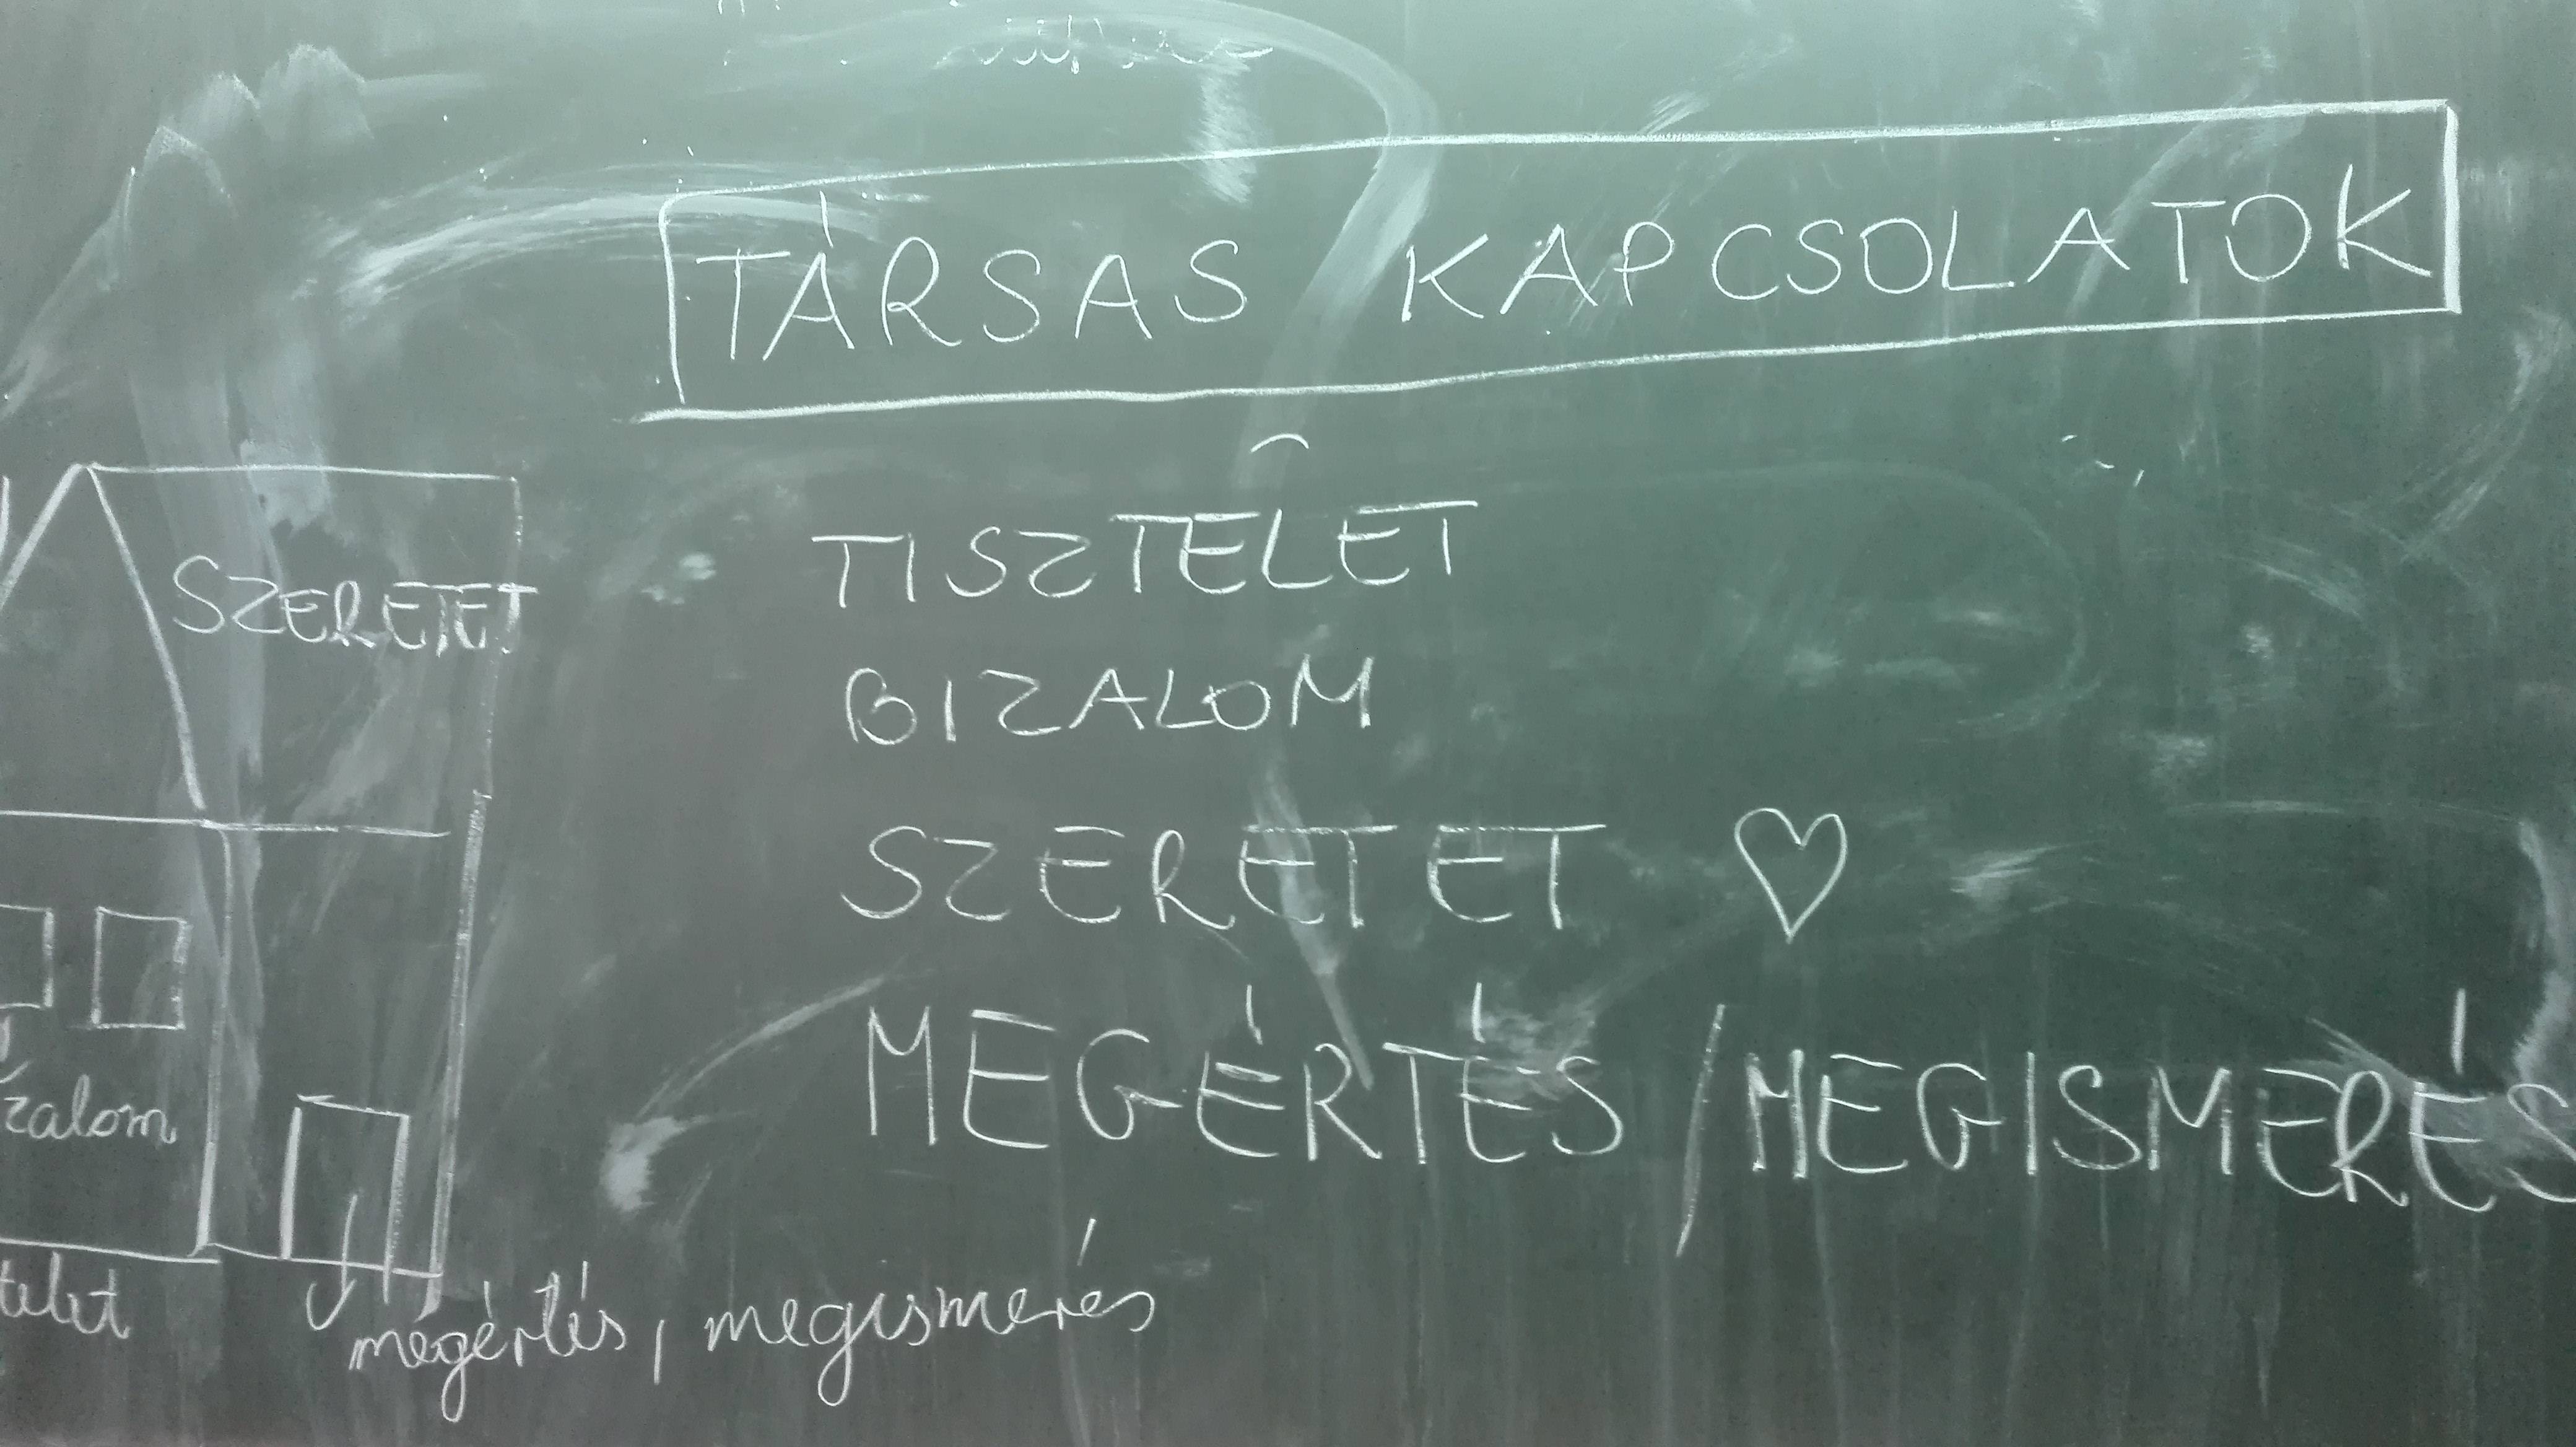 TÁRSAS KAPCSOLATOK
TISZTELET
BIZALOM
SZERETET ♡
MEGÉRTÉS / MEGISMERÉS
SZERETET
zalom
telet
megértés, megismerés